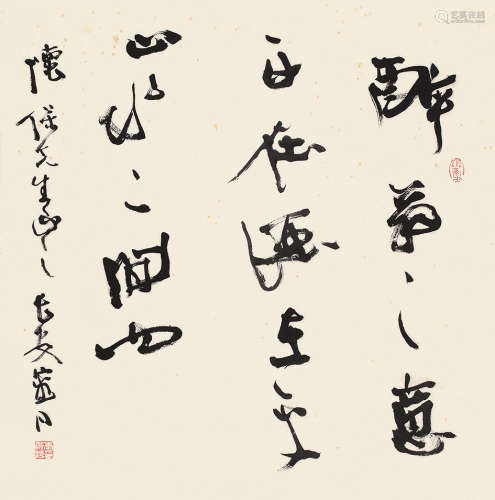 醉翁之意
不在酒在乎
山水之間也
保先生正之 長安